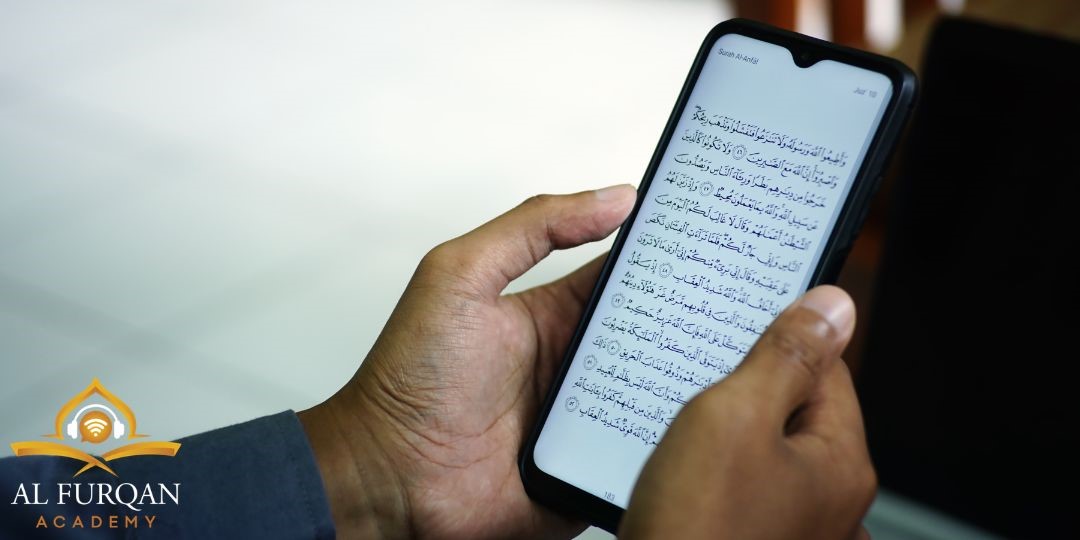 Surah Al-Anfal
Juz' 10
وَأَطِيعُوا۟ ٱللَّهَ وَرَسُولَهُۥ وَلَا تَنَـٰزَعُوا۟ فَتَفْشَلُوا۟ وَتَذْهَبَ رِيحُكُمْ
وَٱصْبِرُوٓا۟ إِنَّ ٱللَّهَ مَعَ ٱلصَّـٰبِرِينَ ٤٦ وَلَا تَكُونُوا۟ كَٱلَّذِينَ
خَرَجُوا۟ مِن دِيَـٰرِهِم بَطَرًا وَرِئَآءَ ٱلنَّاسِ وَيَصُدُّونَ
عَن سَبِيلِ ٱللَّهِ وَٱللَّهُ بِمَا يَعْمَلُونَ مُحِيطٌ ٤٧ وَإِذْ زَيَّنَ لَهُمُ
ٱلشَّيْطَـٰنُ أَعْمَـٰلَهُمْ وَقَالَ لَا غَالِبَ لَكُمُ ٱلْيَوْمَ مِنَ
ٱلنَّاسِ وَإِنِّى جَارٌ لَّكُمْ فَلَمَّا تَرَآءَتِ ٱلْفِئَتَانِ نَكَصَ
عَلَىٰ عَقِبَيْهِ وَقَالَ إِنِّى بَرِىٓءٌ مِّنكُمْ إِنِّىٓ أَرَىٰ مَا لَا تَرَوْنَ
أَخَافُ ٱللَّهَ وَٱللَّهُ شَدِيدُ ٱلْعِقَابِ ٤٨ إِذْ يَقُولُ
وَٱلَّذِينَ فِى قُلُوبِهِم مَّرَضٌ غَرَّ هَـٰٓؤُلَآءِ دِينُهُمْ
يَتَوَكَّلْ عَلَى ٱللَّهِ فَإِنَّ ٱللَّهَ عَزِيزٌ حَكِيمٌ ٤٩
إِذْ يَتَوَفَّى ٱلَّذِينَ كَفَرُوا۟ ٱلْمَلَـٰٓئِكَةُ يَضْرِبُونَ
وَأَدْبَـٰرَهُمْ وَذُوقُوا۟ عَذَابَ ٱلْحَرِيقِ ٥٠ ذَٰلِكَ
وَأَنَّ ٱللَّهَ لَيْسَ بِظَلَّـٰمٍ لِّلْعَبِيدِ ٥١
وَٱلَّذِينَ مِن قَبْلِهِمْ كَفَرُوا۟ بِـَٔايَـٰتِ ٱللَّهِ
إِنَّ ٱللَّهَ قَوِىٌّ شَدِيدُ ٱلْعِقَابِ ٥٢
183
AL FURQAN
ACADEMY